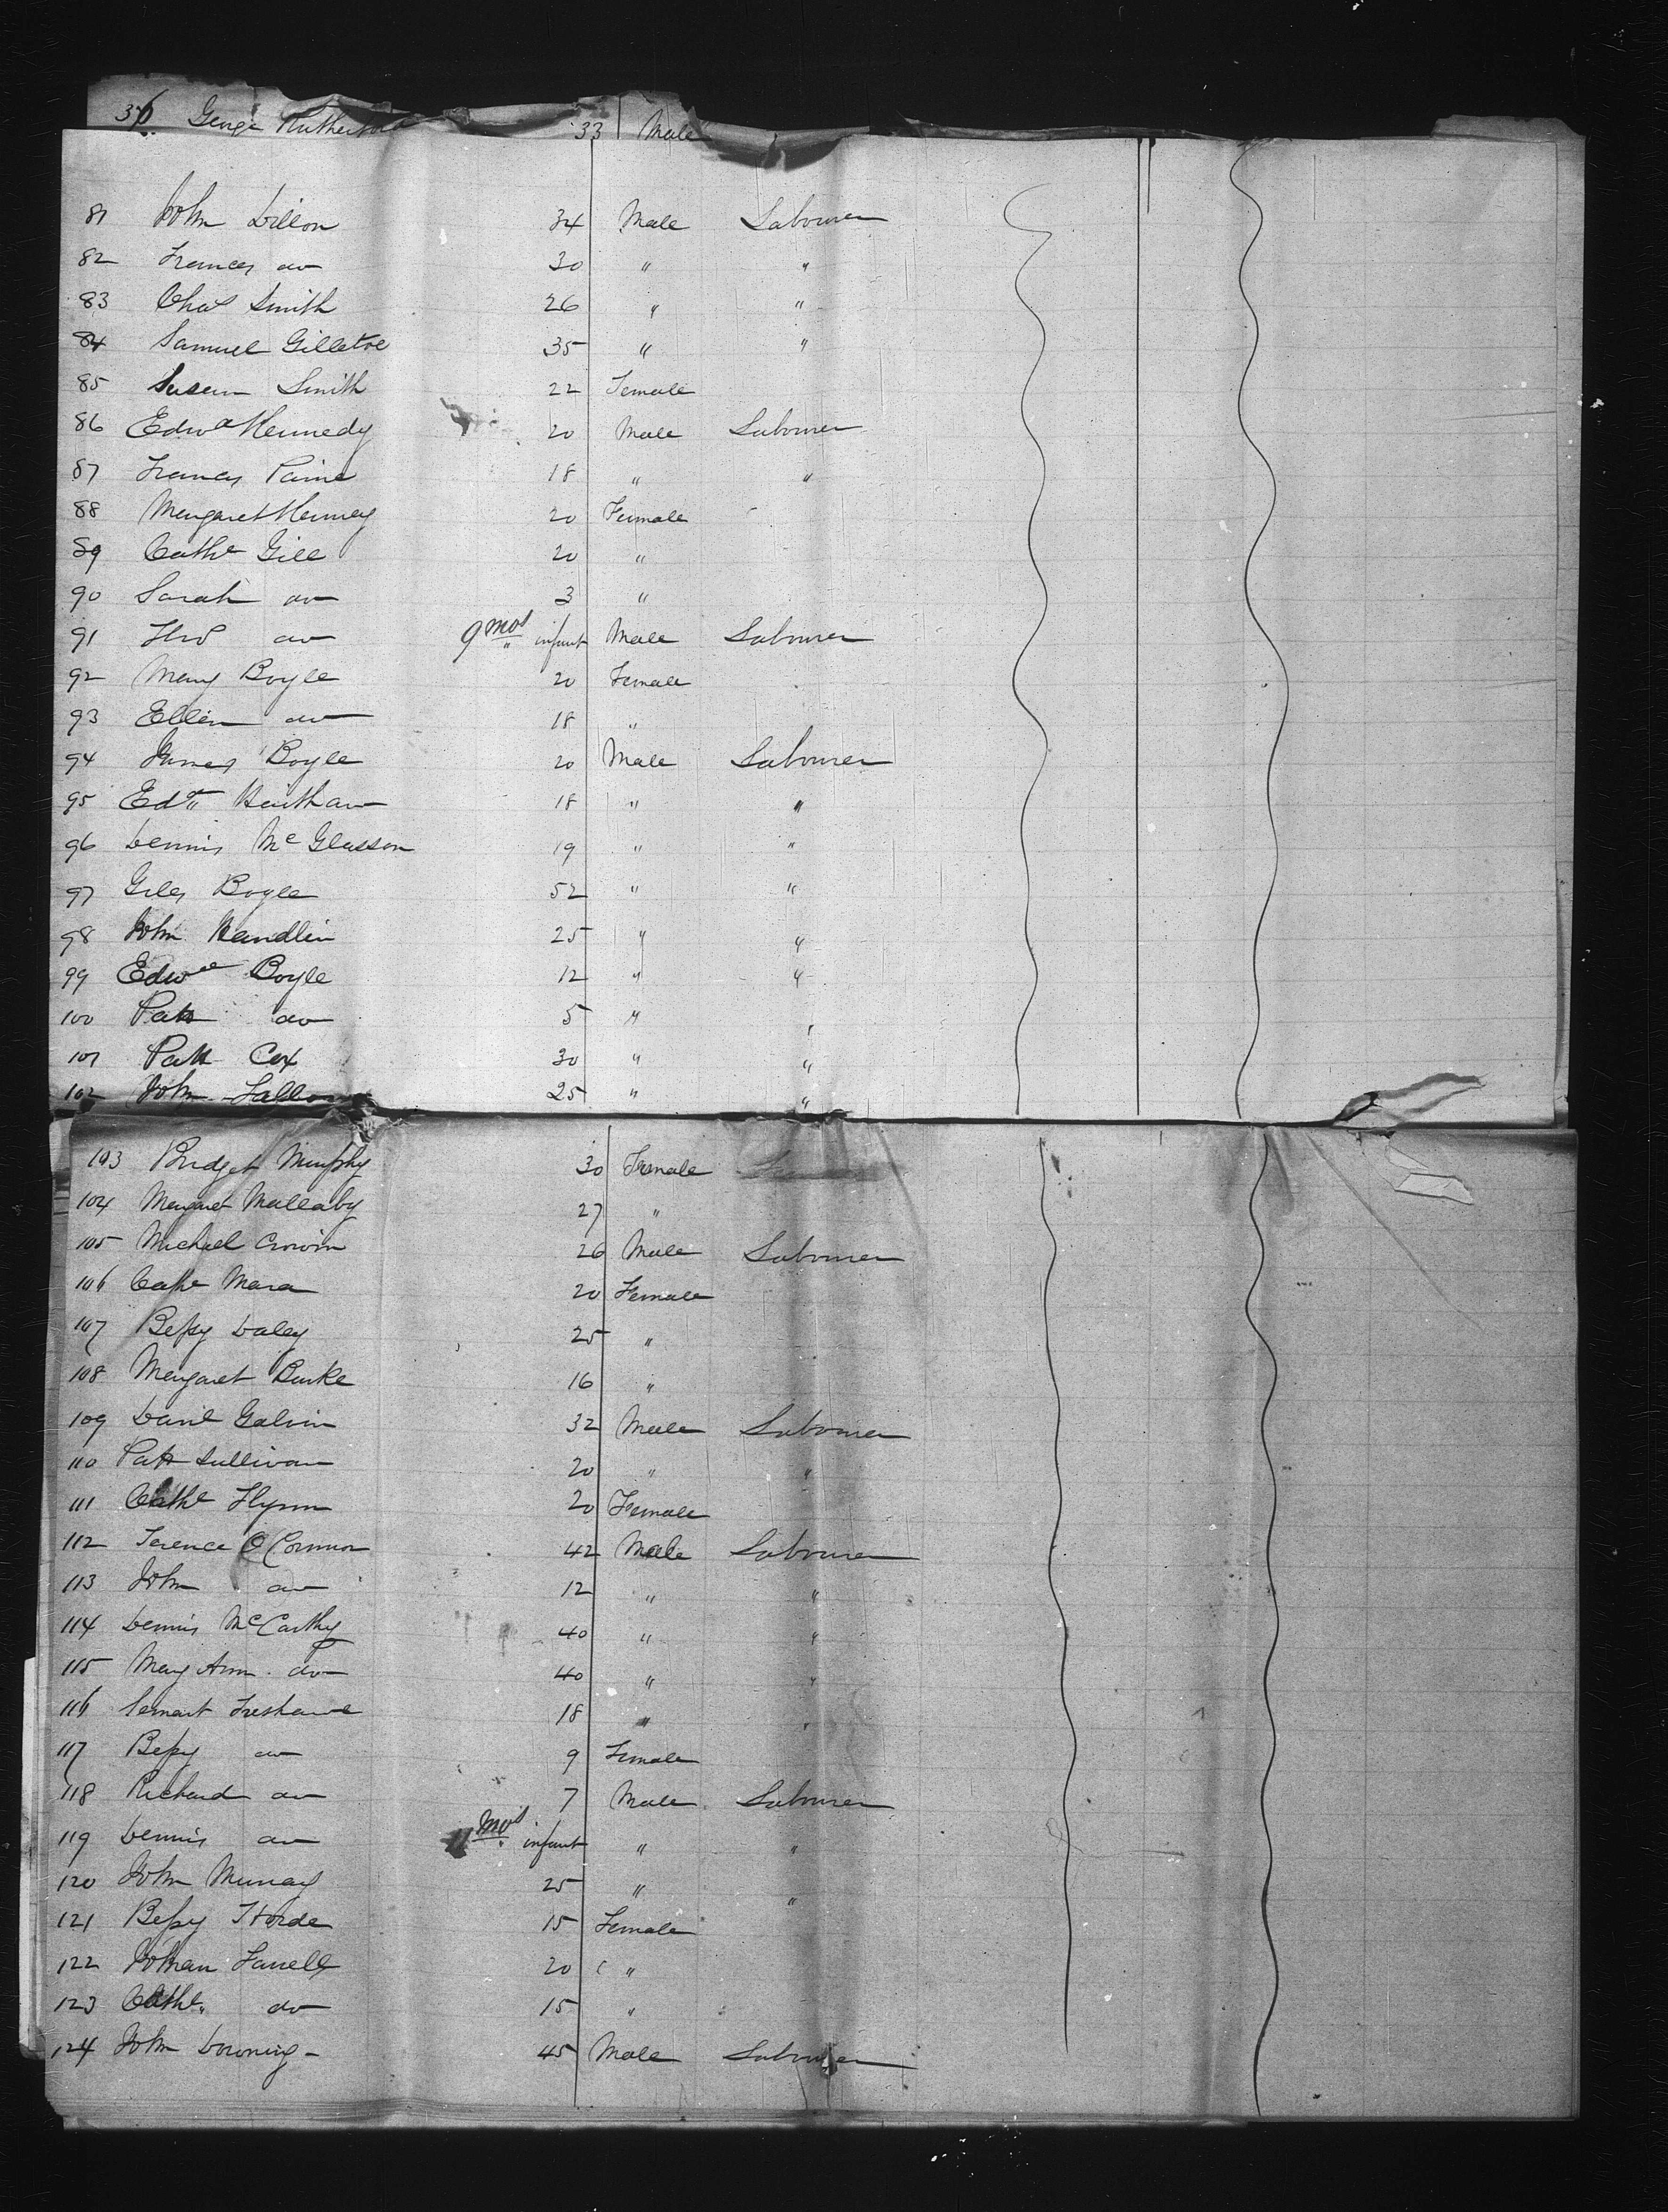 36 George Rutherford 33 Male
81 John Dillon 34 Male Labourer
82 Frances do 30 " "
83 Chas Smith 26 " "
84 Samuel 35 " "
85 Susan Smith 22 Female
86 Edwd Kennedy 20 Male Labourer
87 Frances Paine 18 " "
88 Margaret 20 Female
89 Cathe Gill 20 "
90 Sarah do 3 "
91 do 9 mos " infant Male Labourer
92 Mary Boyle 20 Female
93 Ellen do 18 "
94 James Boyle 20 Male Labourer
95 18 " "
96 Dennis McGlasson 19 " "
97 Giles Boyle 52 " "
98 John Handlin 25 " "
99 Edwd Boyle 12 " "
100 Patk do 5 " "
101 Patk Cox 30 " "
102 John 25 " "
103 Bridget Murphy 30 Female
104 Margaret Mallaby 27 "
105 Michael Cronin 26 Male Labourer
106 Cathe Mara 20 Female
107 Bessy Daley 25 "
108 Margaret Burke 16 "
109 Danl Galvin 32 Male Labourer
110 Patk Sullivan 20 " "
111 Cathe Flynn 20 Female
112 Terence O Connor 42 Male Labourer
113 John do 12 " "
114 Dennis McCarthy 40 " "
115 Mary Ann do 40 " "
116 18 " "
117 Bessy do 9 Female
118 Richard do 7 Male Labourer
119 Dennis do 11 mos " infant " "
120 John Murray 25 " "
121 Bessy 15 Female
122 Johan Farrell 20 "
123 Cathe do 15 "
124 John Downing - 45 Male Labourer